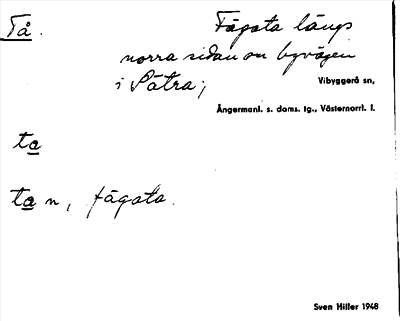 Tå. Fägata längs
norra sidan om byvägen
i Sätra;
Vibyggerå sn,
Ångermanl. s. doms. tg., Västernorrl. l.
ta
tan, fägata.
Sven Hiller 1948